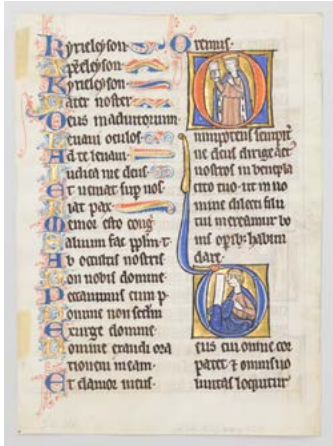 Kyrieleyson
Xp̄eleyson
Kyrieleyson
Pater noster
Deus in adiutorium
Levavi oculos
Ad te levavi
Iudica me deus
Et veniat sup nos
Fiat pax
Memor esto cong
Salvum fac pplm t
Ab occultis
Non nobis domine
Peccavimus cum p
Domine non scdm
Exurge domine
Domine exaudi ora
tionem meam
Et clamor meus
Oremus
Omnipotens sempit
ne deus dirige act
nostros in benepla
cito tuo ut in no
mine dilecti filii
tui mereamur bo
nis opib habun
dare
Deus cui omne cor
patet &amp; omnis vo
luntas loquitur